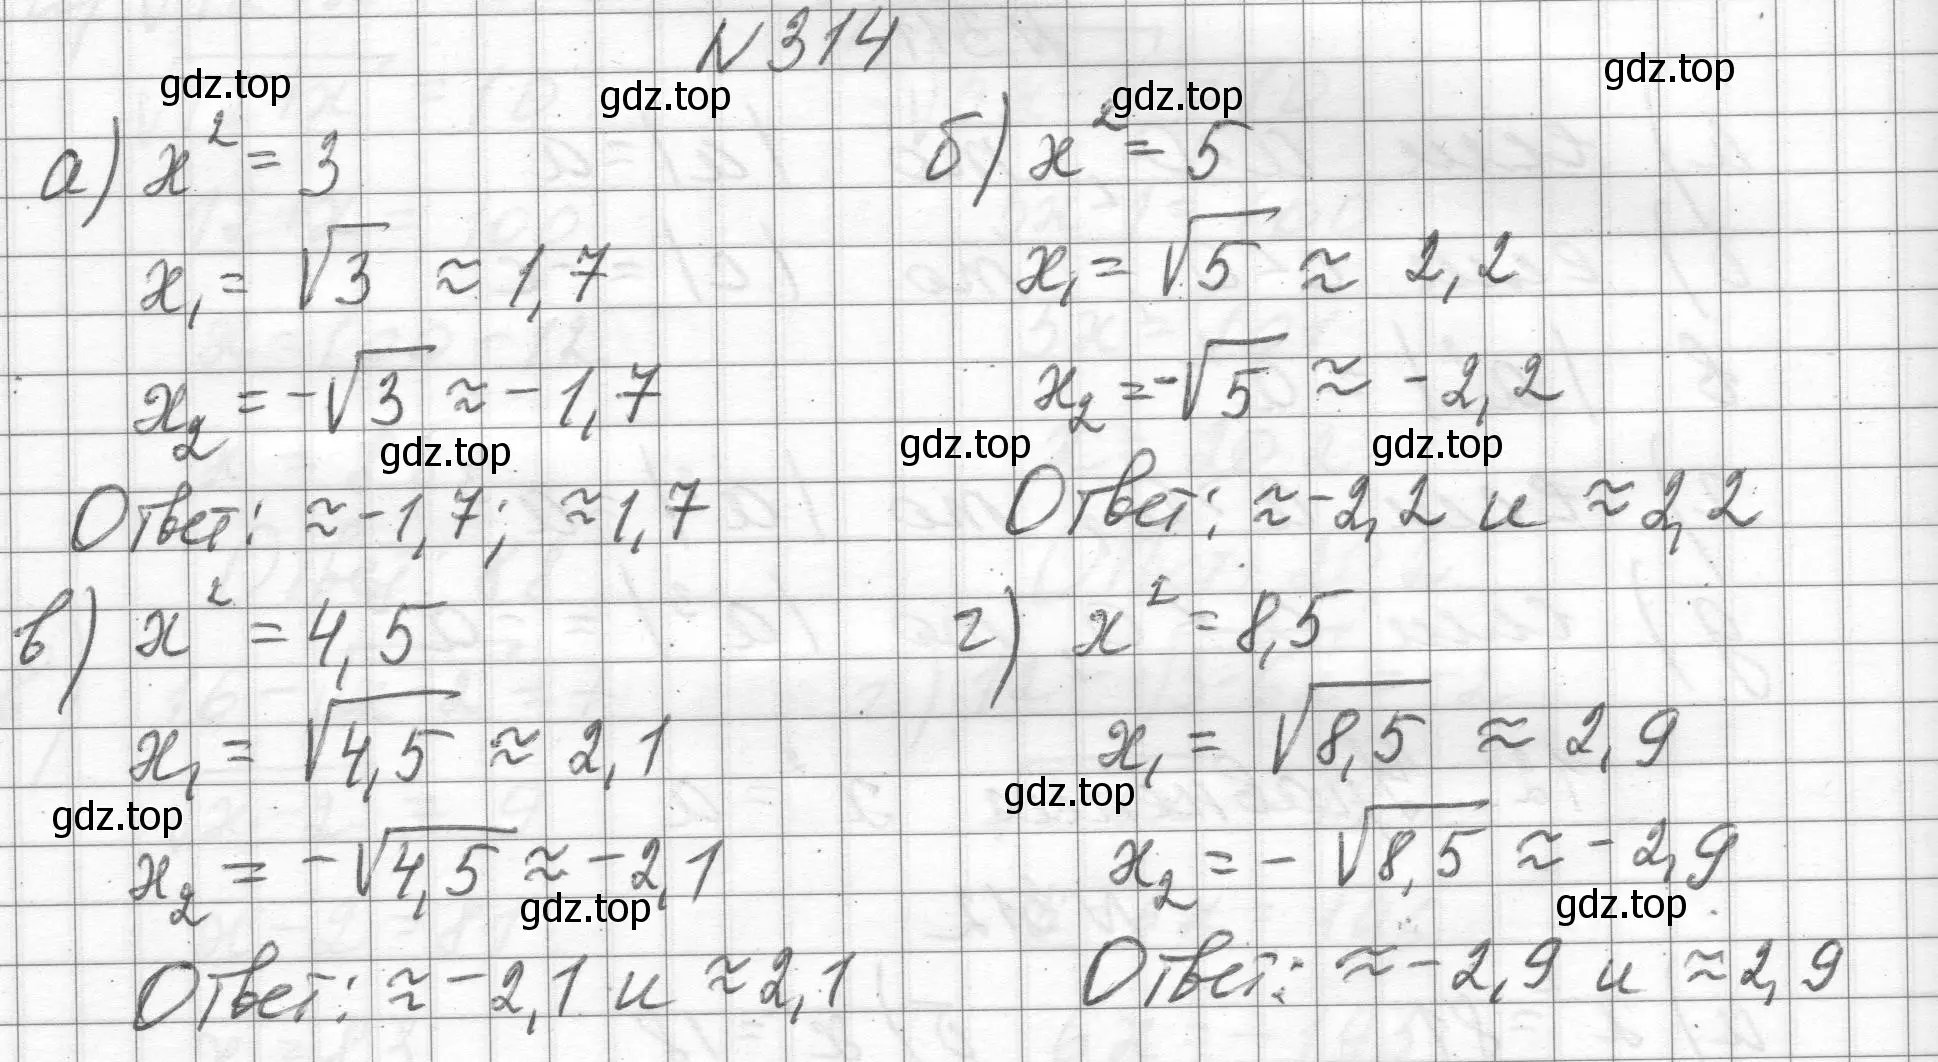 N 314
gdz.top gdz.top gdz.top gdz.top
а) x² = 3
x₁ = √3 ≈ 1,7
x₂ = -√3 ≈ -1,7
gdz.top
Ответ: ≈ -1,7; ≈ 1,7
б) x² = 5
x₁ = √5 ≈ 2,2
x₂ = -√5 ≈ -2,2
gdz.top gdz.top
Ответ: ≈ -2,2 и ≈ 2,2
в) x² = 4,5
x₁ = √4,5 ≈ 2,1
gdz.top
x₂ = -√4,5 ≈ -2,1
gdz.top
Ответ: ≈ -2,1 и ≈ 2,1
г) x² = 8,5
x₁ = √8,5 ≈ 2,9
gdz.top
x₂ = -√8,5 ≈ -2,9
gdz.top
Ответ: ≈ -2,9 и ≈ 2,9